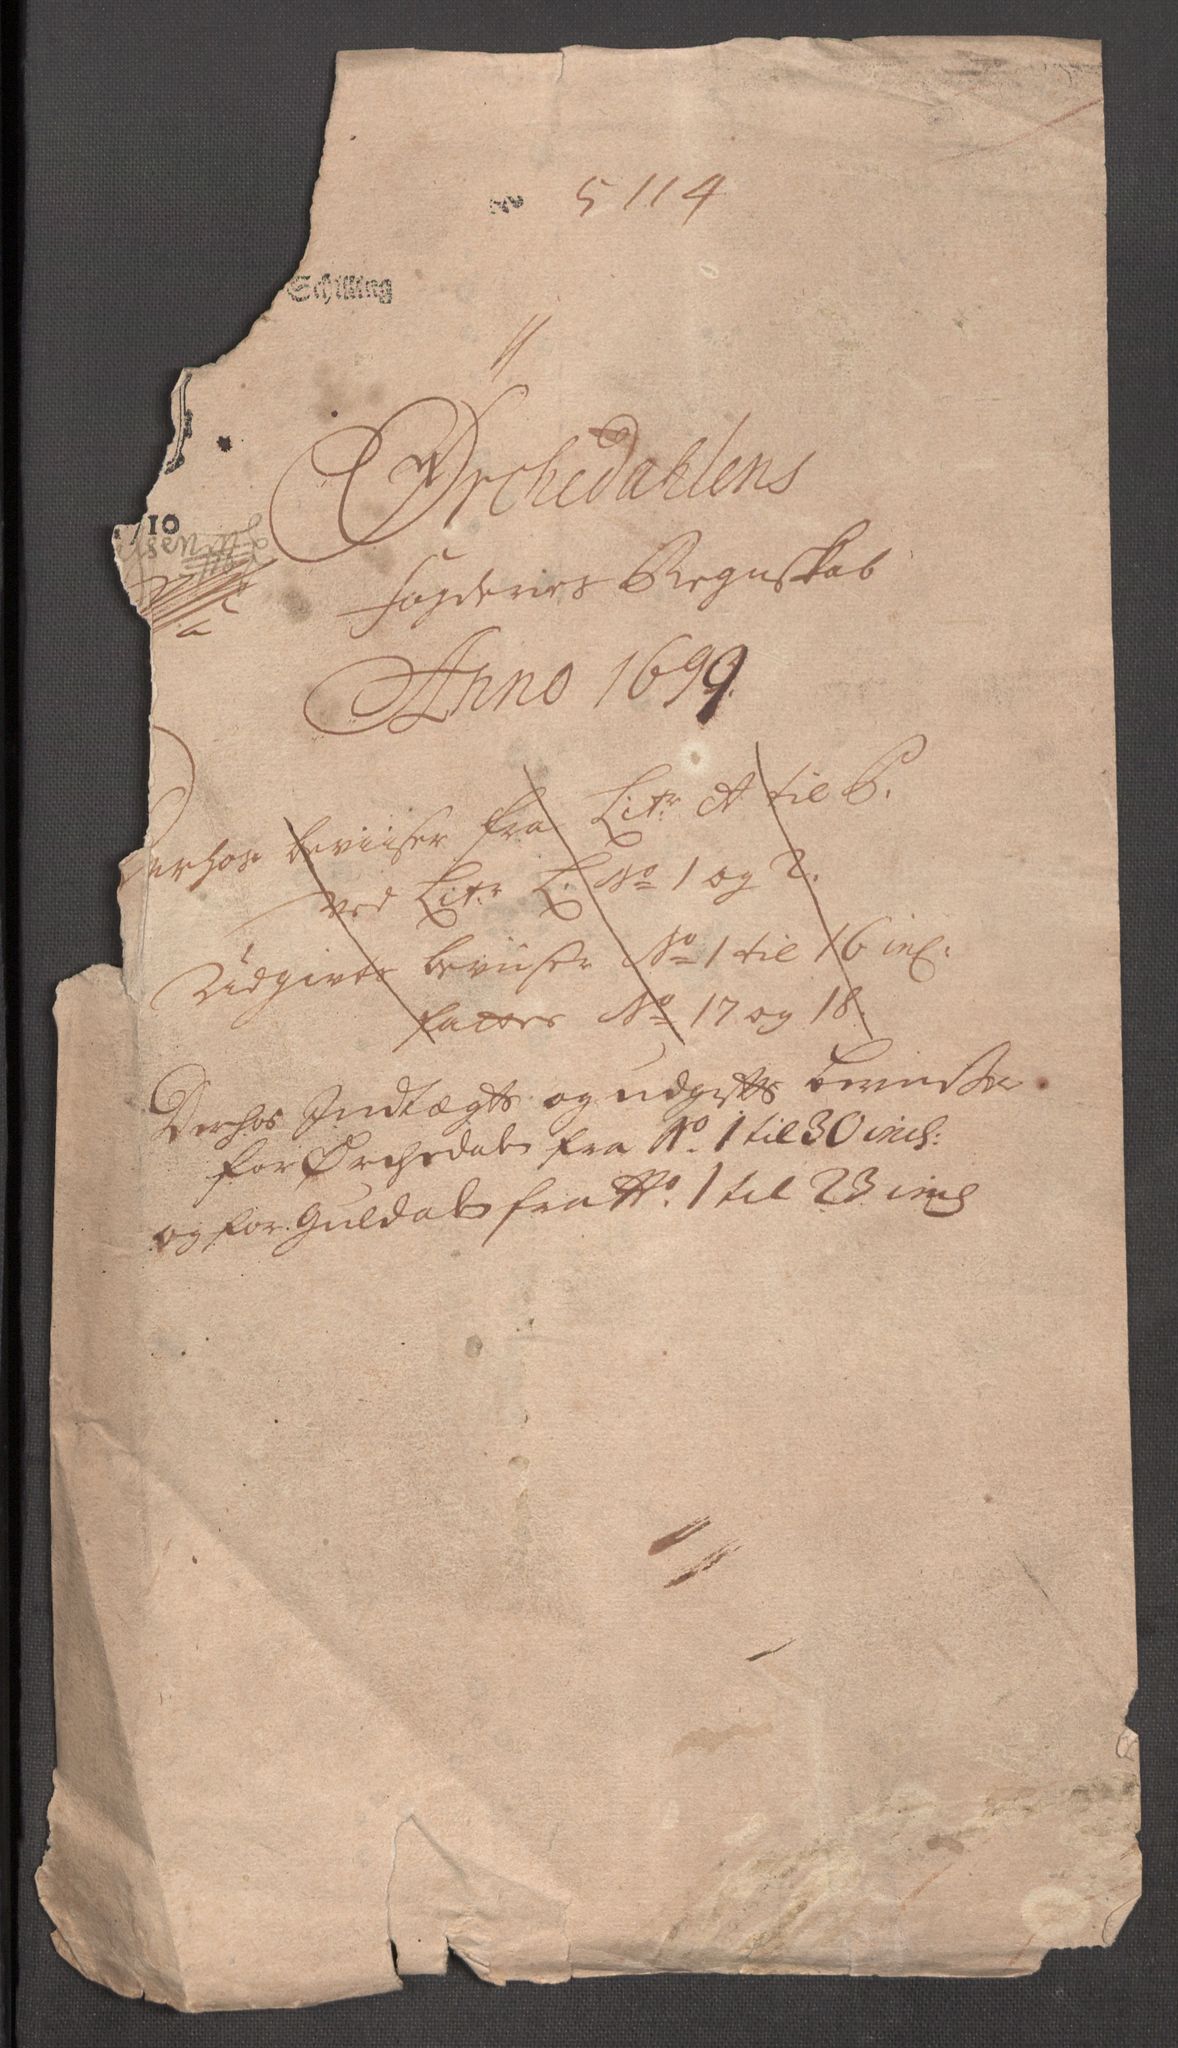 No 5114
Schilling
Ørchedahlens
fogderies Regnskab
Anno 1699.
1710
Derhos beviiser fra Litr A til P.
ved Litr L. No 1 og 2.
Udgives beviiser No 1 til 16 incl.
factors No 17 og 18.
Derhos Indtægts og udgifts beviiser
for Ørchedals fra No. 1 til 30 incl:
og for Guldals fra No. 1 til 23 incl